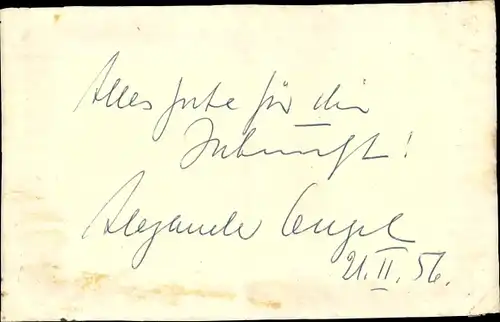 Alles gute für die
Zukunft!
Alexander Engel
21. II. 56.